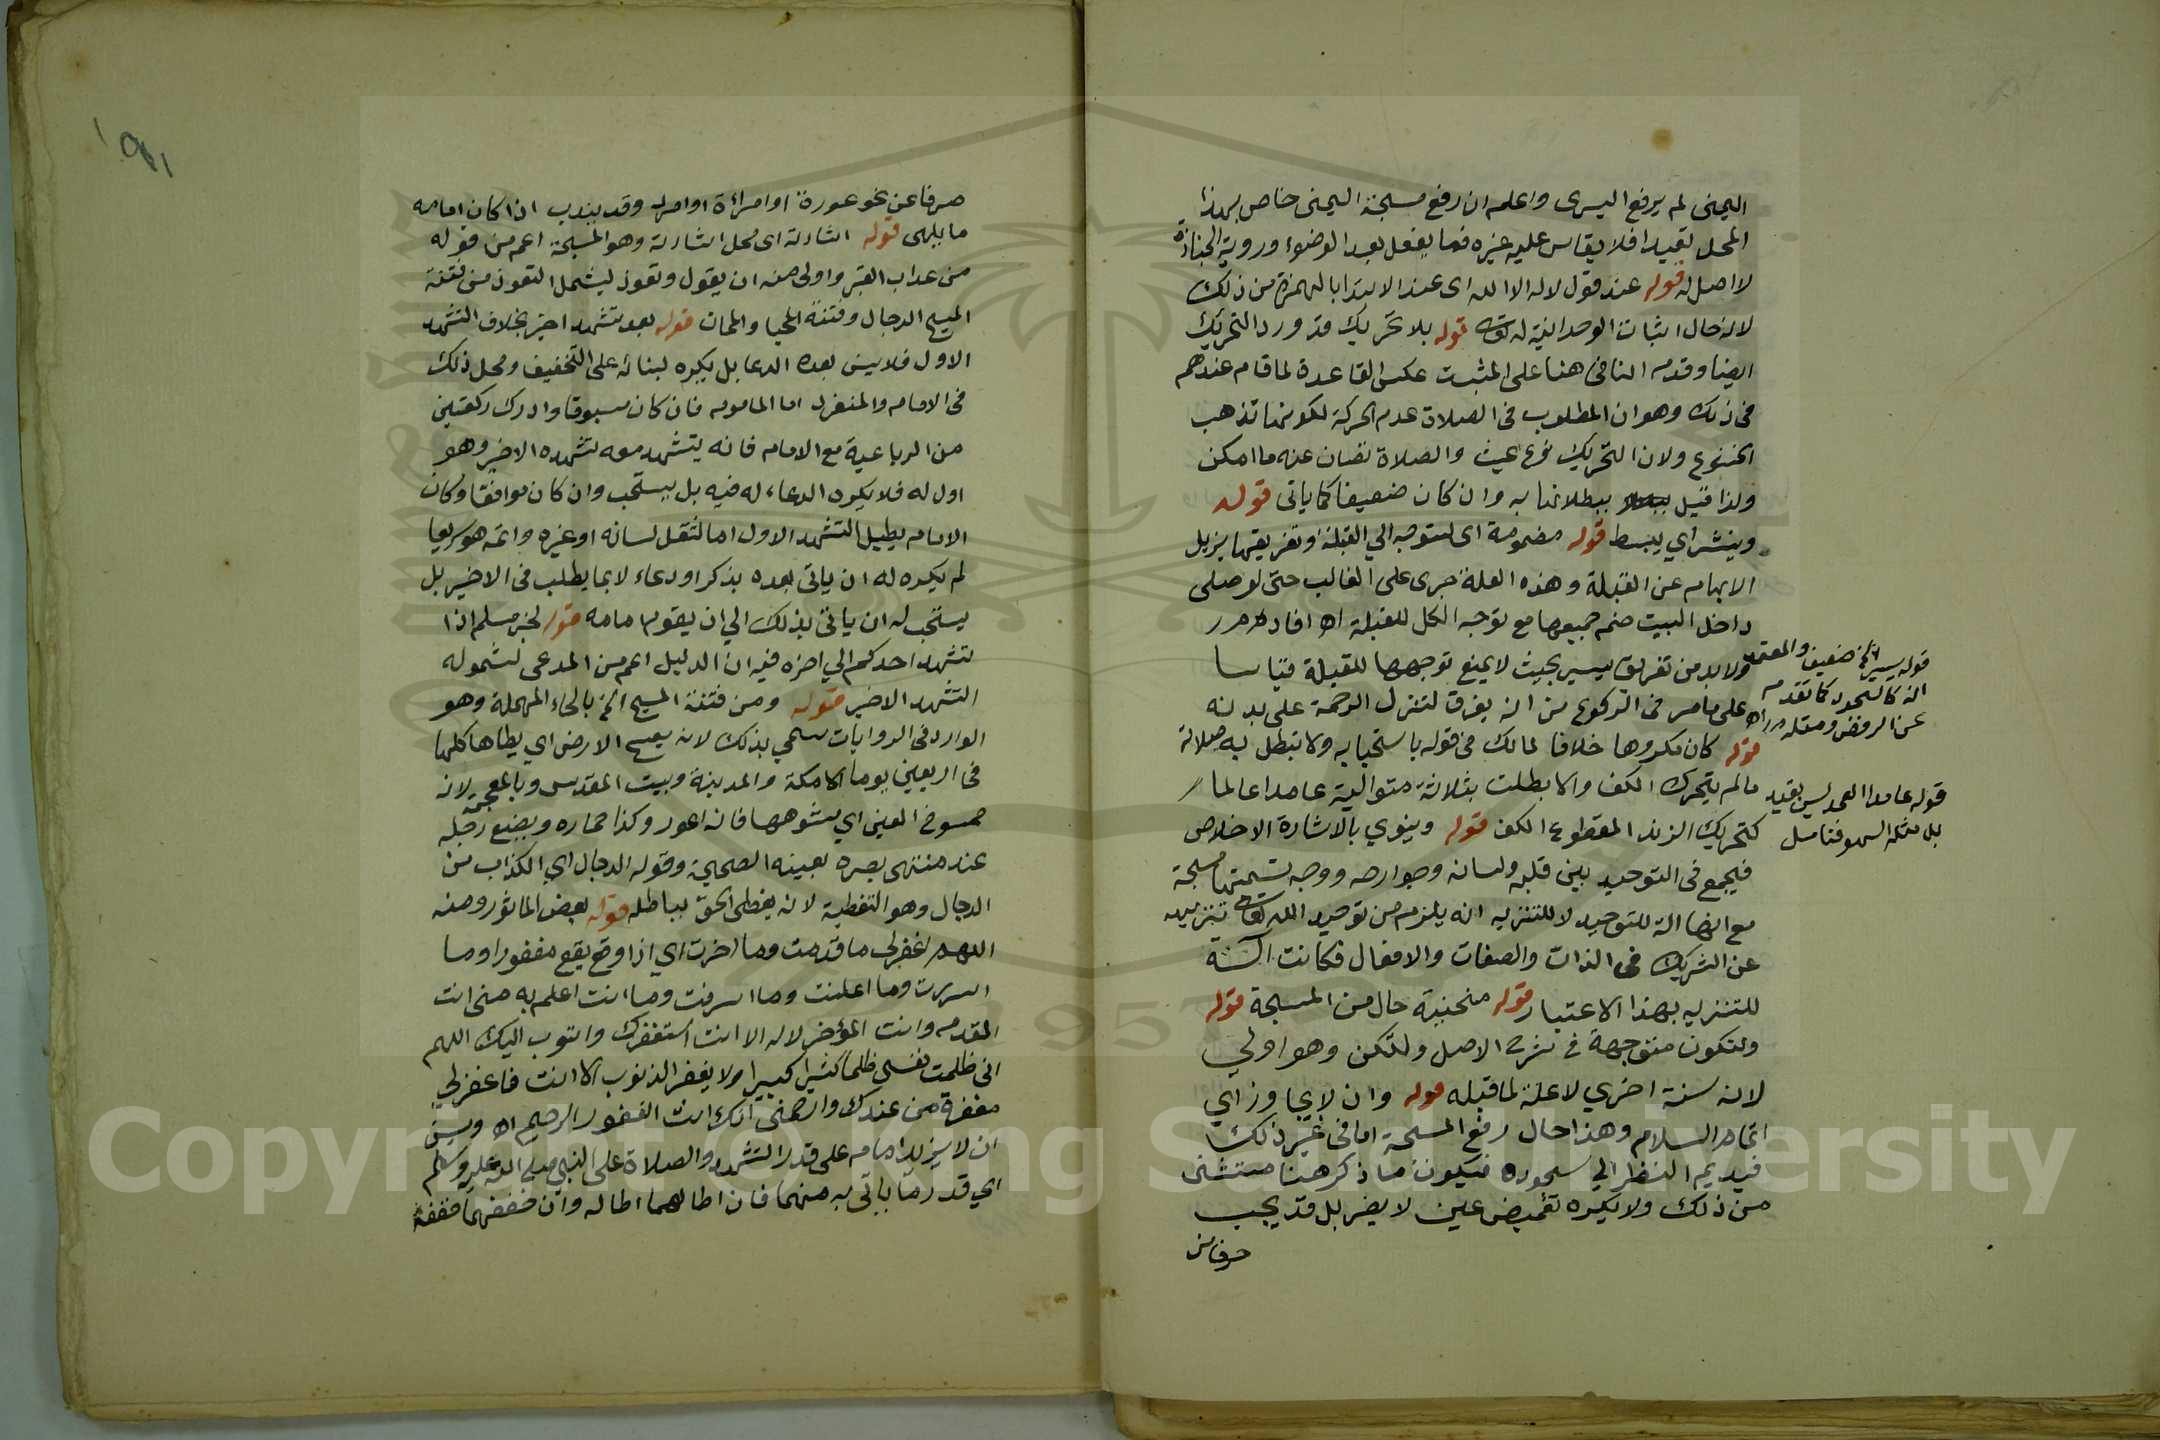 اليمنى لم يرفع اليسرى واعلم ان رفع مسبحة اليمنى خاص بهذا
المحل تعبدا فلا يقاس عليه غيره فما يفعل بعد الوضوء وروية الجنازة
لا اصل له قوله عند قول لا اله الا الله اى عند الابتدا بالهمزة من ذلك
لانه حال اثبات الوحدانية له تعالى قوله بلا تحريك قد ورد التحريك
ايضا وقدم النافى هنا على المثبت عكس القاعدة لما قام عندهم
فى ذلك وهو ان المطلوب فى الصلاة عدم الحركة لكونها تذهب
الخشوع ولان التحريك نوع عبث والصلاة تصان عنه ما امكن
ولذا قيل ببطلانها به وان كان ضعيفا كما ياتى قوله
وينشر اي يبسط قوله مضمومة اى لتتوجه الي القبلة وتفريقها يزيل
الابهام عن القبلة وهذه العلة جرى على الغالب حتى لو صلى
داخل البيت ضم جميعها مع توجه الكل للقبلة اه افاده م ر
ولا بد من تفريق يسير بحيث لا يمنع توجهها للقبلة قياسا
على ما مر فى الركوع من انه يفرق لتنزل الرحمة على بدنه
قوله كان مكروها خلافا لمالك فى قوله باستحبابه ولا تبطل به صلاته
ما لم يتحرك الكف والا بطلت بثلاثة متوالية عامدا عالما
كتحريك الزند المقطوع الكف قوله وينوي بالاشارة الاخلاص
فيجمع فى التوحيد بين قلبه ولسانه وجوارحه ووجه تسميتها مسبحة
مع انها الة للتوحيد لا للتنزيه انه يلزم من توحيد الله تعالى تنزيهه
عن الشريك فى الذات والصفات والافعال فكانت آلة
للتنزيه بهذا الاعتبار قوله منحنية حال من المسبحة قوله
ولتكون متوجهة فى شرح الاصل ولتكن وهو اولي
لانه سنة اخري لا علة لما قبله قوله وان لا يجاوز اي
اتمام السلام وهذا حال رفع المسبحة اما فى غير ذلك
فيديم النظر الي سجوده فيكون ما ذكر هنا مستثنى
من ذلك ولا يكره تغميض عين لا يضر بل قد يجب
قوله يسير الخ ضعيف والمعتمد
انه كالسجود كما تقدم
عن الروض ومثله م ر اه
قوله عامدا العمد ليس بقيد
بل مثله السهو فتامل
صرفا عن نحو عورة او امراة او امرد وقد يندب اذا كان امامه
ما يلهى قوله اشارته اى محل اشارته وهو المسبحة اعم من قوله
من عذاب القبر واولى منه ان يقول وتعوذ ليشمل التعوذ من فتنة
المسيح الدجال وفتنة المحيا والممات قوله بعد تشهد اخير بخلاف التشهد
الاول فلا يسن بعده الدعا بل يكره لبنائه على التخفيف ومحل ذلك
فى الامام والمنفرد اما الماموم فان كان مسبوقا وادرك ركعتين
من الرباعية مع الامام فانه يتشهد معه تشهده الاخير وهو
اول له فلا يكره الدعاء له فيه بل يستحب وان كان موافقا وكان
الامام يطيل التشهد الاول اما لثقل لسانه او غيره واتمه هو سريعا
لم يكره له ان ياتى بعده بذكر او دعاء لا بما يطلب فى الاخير بل
يستحب له ان ياتى بذلك الي ان يقوم امامه قوله لخبر مسلم اذا
تشهد احدكم الي اخره فيه ان الدليل اعم من المدعى لشموله
التشهد الاخير قوله ومن فتنة المسيح الخ بالحاء المهملة وهو
الوارد فى الروايات سمي بذلك لانه يمسح الارض اي يطاها كلها
فى اربعين يوما الا مكة والمدينة وبيت المقدس وبالمعجمة لانه
ممسوخ العين اي مشوهها فانه اعور وكذا حماره ويضع رجله
عند منتهى بصره بعينه الصحيحة وقوله الدجال اي الكذاب من
الدجال وهو التغطية لانه يغطى الحق بباطله قوله بعض الماثور ومنه
اللهم اغفر لى ما قدمت وما اخرت اي اذا وقع يقع مغفورا وما
اسررت وما اعلنت وما اسرفت وما انت اعلم به منى انت
المقدم وانت المؤخر لا اله الا انت استغفرك واتوب اليك اللهم
انى ظلمت نفسى ظلما كثيرا كبيرا ولا يغفر الذنوب الا انت فاغفر لي
مغفرة من عندك وارحمنى انك انت الغفور الرحيم اه ويسن
ان لا يزيد امام على قدر التشهد والصلاة على النبى صلى الله عليه وسلم
اي قدر ما ياتى به منهما فان اطالهما اطاله وان خففهما خففه
Copyright © King Saud University
1957